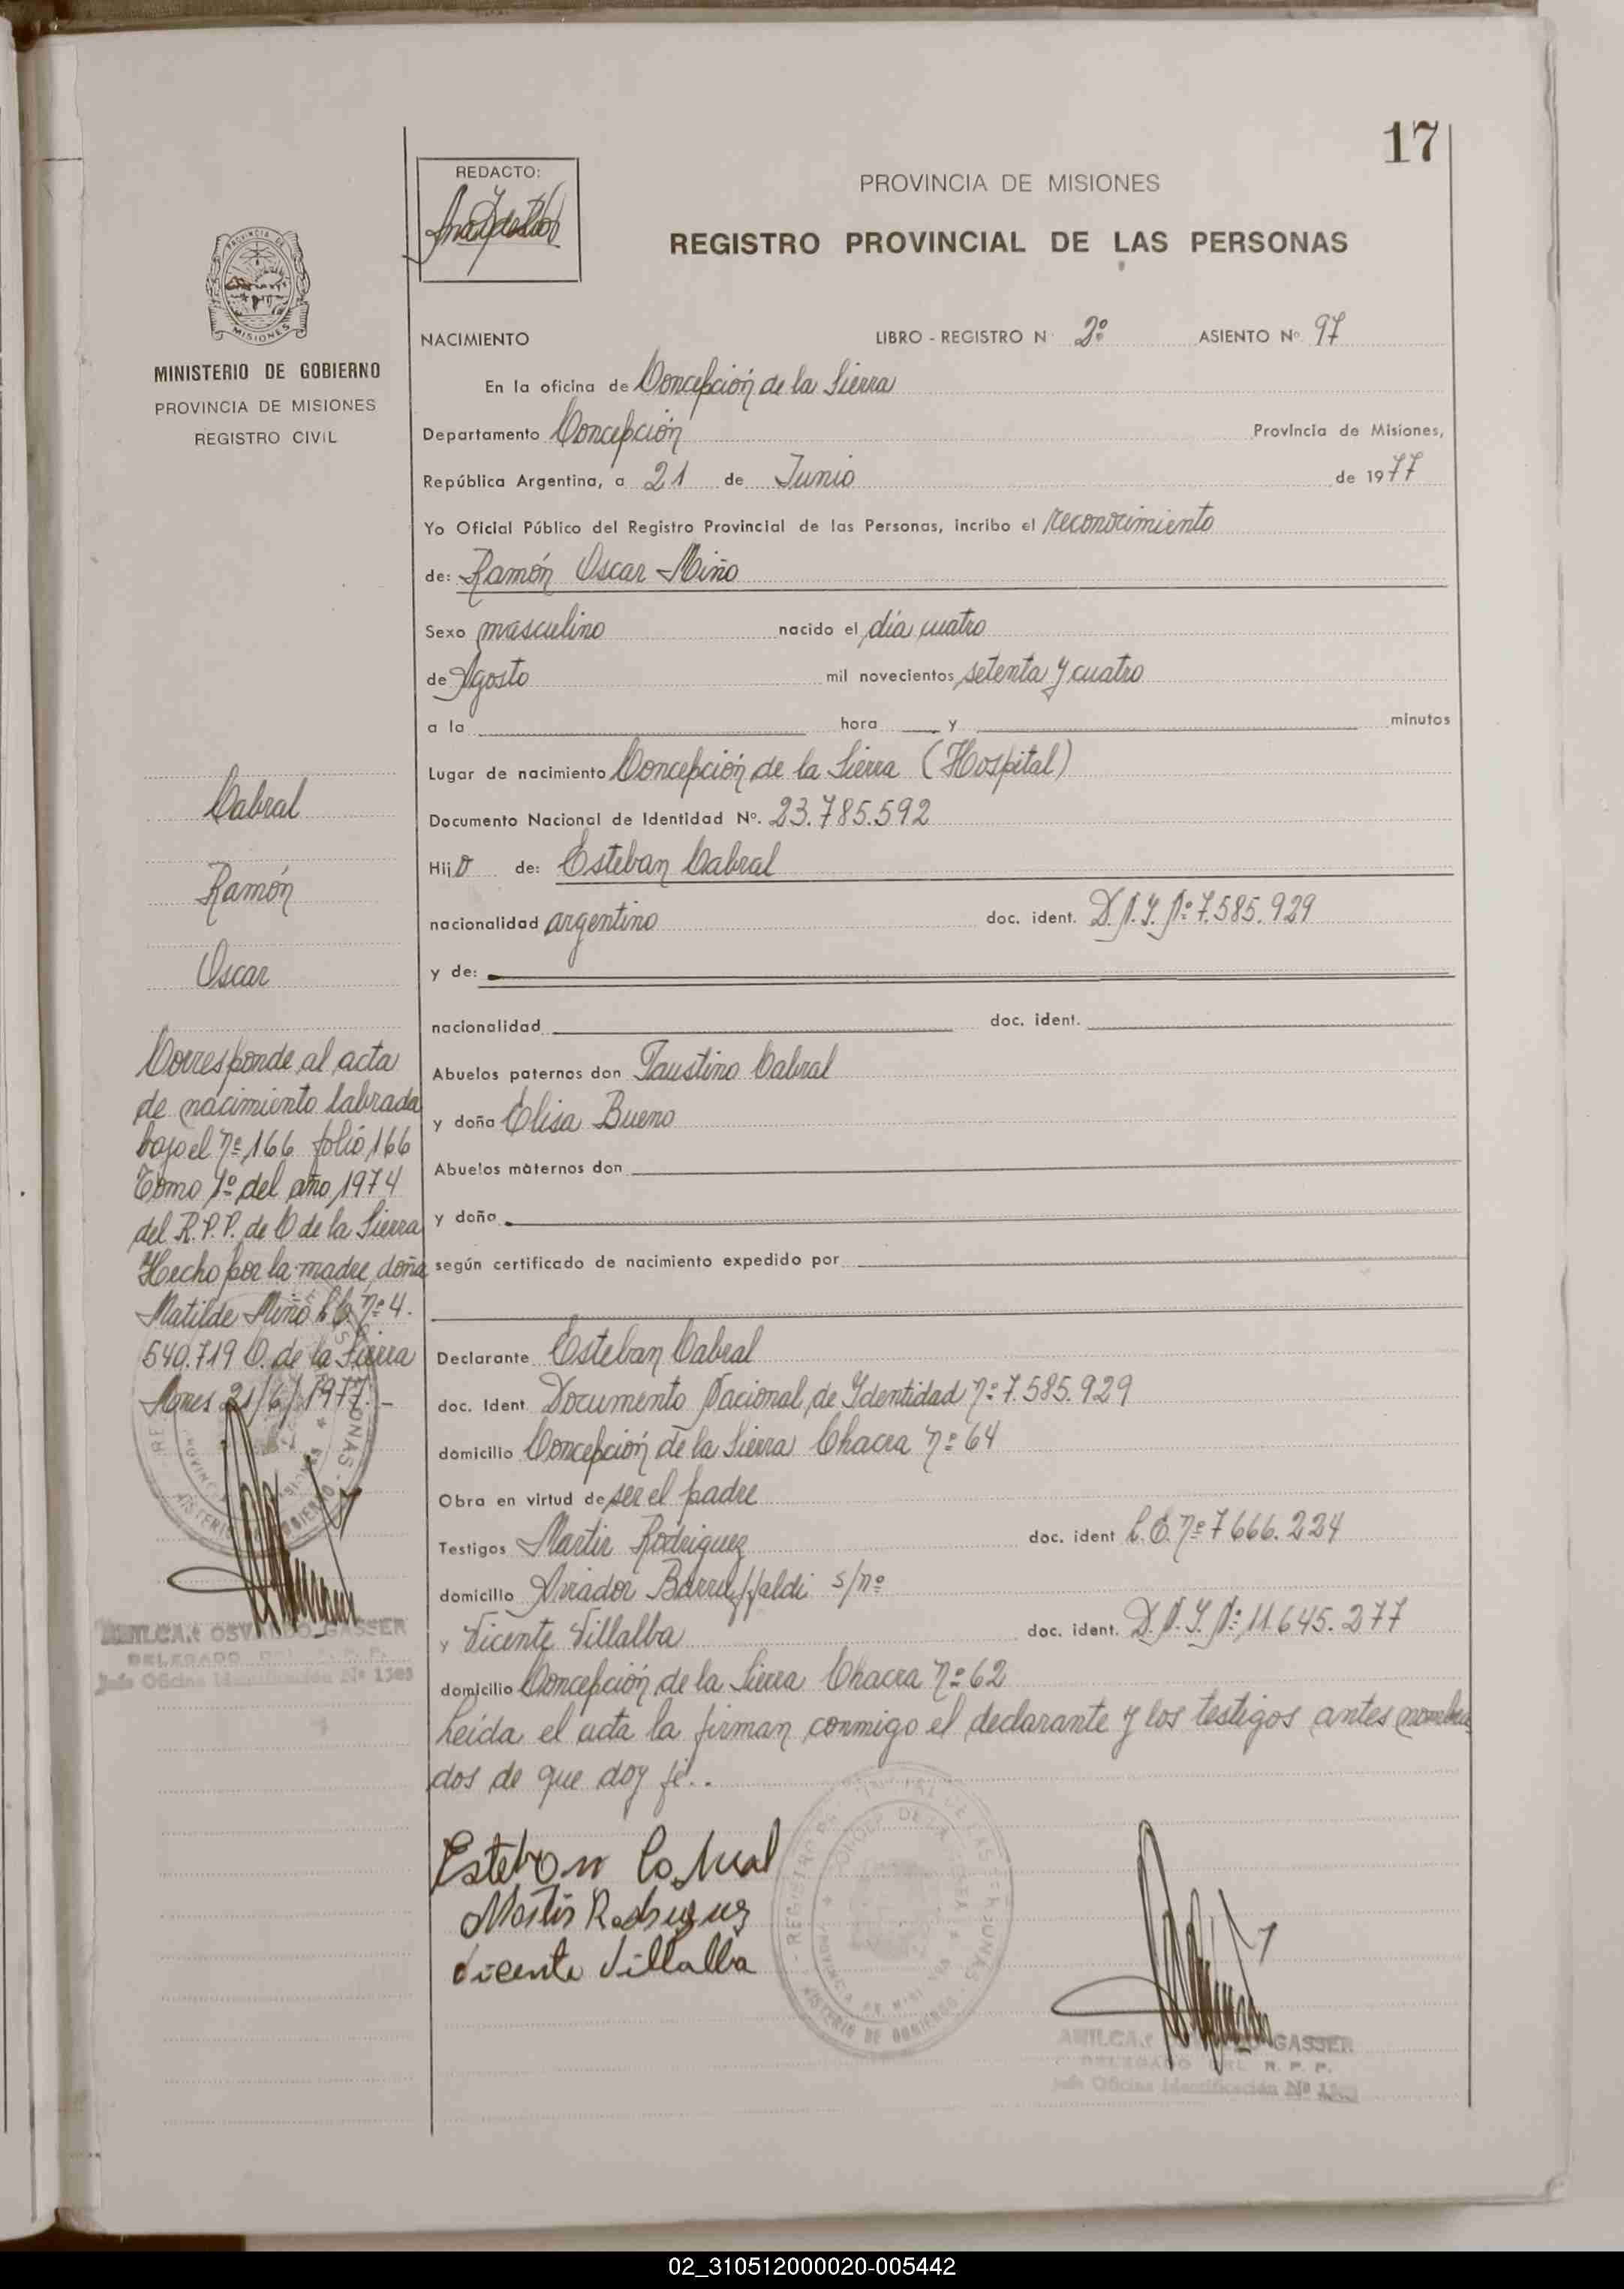 17
REDACTO:
PROVINCIA DE MISIONES
REGISTRO PROVINCIAL DE LAS PERSONAS
MISIONES
MINISTERIO DE GOBIERNO
PROVINCIA DE MISIONES
REGISTRO CIVIL
NACIMIENTO LIBRO - REGISTRO N 2º ASIENTO Nº 97
En la oficina de Concepción de la Sierra
Departamento Concepción Provincia de Misiones,
República Argentina, a 21 de Junio de 1977
Yo Oficial Público del Registro Provincial de las Personas, incribo el reconocimiento
de: Ramón Oscar Miño
Sexo masculino nacido el día cuatro
de Agosto mil novecientos setenta y cuatro
a la hora y minutos
Lugar de nacimiento Concepción de la Sierra (Hospital)
Documento Nacional de Identidad Nº. 23.785.592
Hijo de: Esteban Cabral
nacionalidad argentino doc. ident. D.N.I. Nº 7.585.929
y de:
nacionalidad doc. ident.
Abuelos paternos don Faustino Cabral
y doña Elisa Bueno
Abuelos maternos don
y doña
según certificado de nacimiento expedido por
Declarante Esteban Cabral
doc. Ident Documento Nacional de Identidad nº 7.585.929
domicilio Concepción de la Sierra Chacra nº 64
Obra en virtud de ser el padre
Testigos Martir Rodriguez doc. ident L.E. nº 7666.224
domicilio Aviador s/nº
y Vicente Villalba doc. ident. D.N.I. Nº 11.645.277
domicilio Concepción de la Sierra Chacra nº 62
Leída el acta la firman conmigo el declarante y los testigos antes nombra
dos de que doy fé..
Cabral
Ramón
Oscar
Corresponde al acta
de nacimiento labrada
bajo el nº 166 folio 166
Tomo 1º del año 1974
del R.P.P. de C de la Sierra
Hecho por la madre doña
Matilde Miño L.C. nº 4.
540.719 C. de la Sierra
Mnes 21/6/1977.-
AMILCAR OSVALDO GASSER
DELEGADO DEL R. P. P.
Jefe Oficina Identificación Nº 1303
Esteban Cabral
Martir Rodriguez
Vicente Villalba
REGISTRO PROVINCIAL DE LAS PERSONAS
CONCEP. DE LA SIERRA
PROVINCIA DE MISIONES
MINISTERIO DE GOBIERNO
AMILCAR OSVALDO GASSER
DELEGADO DEL R. P. P.
Jefe Oficina Identificación Nº
02_310512000020-005442